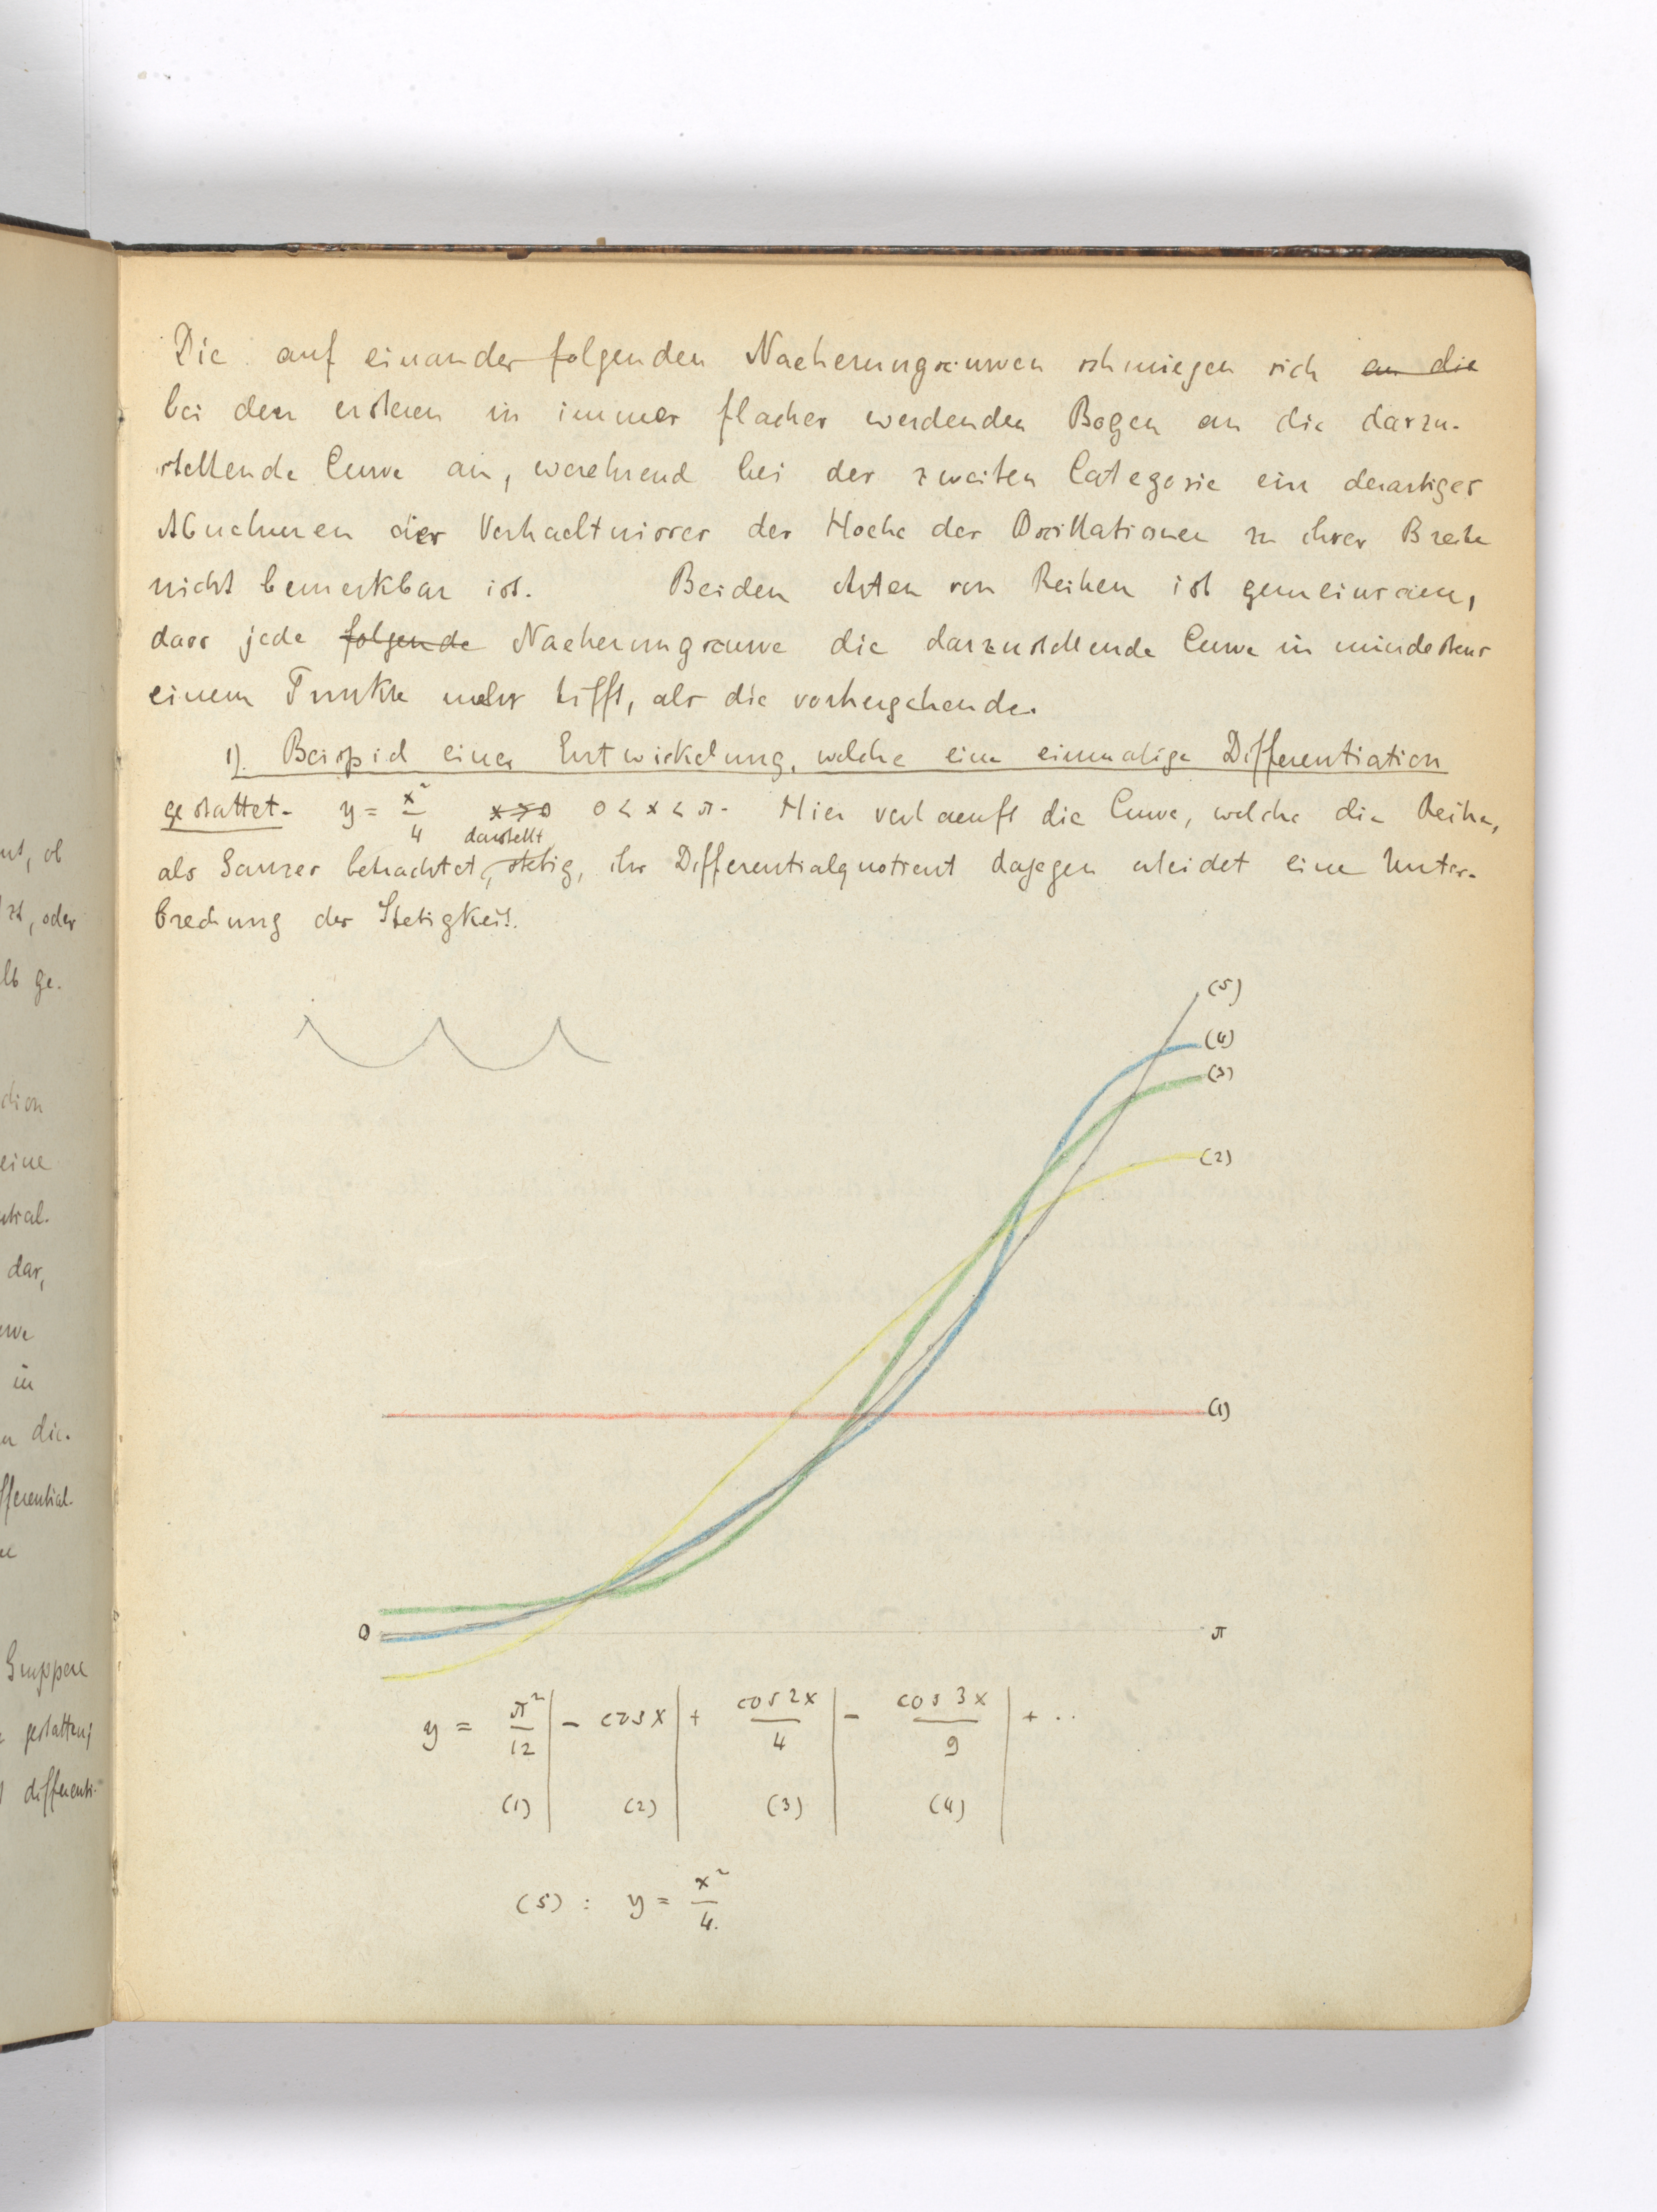 Die auf einander folgenden Naeherungscurven schmiegen sich an die
bei den ersteren in immer flacher werdenden Bogen an die darzu-
stellende Curve an, waehrend bei der zweiten Categorie ein derartiges
Abnehmen des Verhaeltnisses der Hoehe der Oscillationen zu ihrer Breite
nicht bemerkbar ist. Beiden Arten von Reihen ist gemeinsam,
dass jede folgende Naeherungscurve die darzustellende Curve in mindestens
einem Punkte mehr trifft, als die vorhergehende.
1). Beispiel einer Entwickelung, welche eine einmalige Differentiation
gestattet. y = x²/4 x > 0 0 < x < π. Hier verlaeuft die Curve, welche die Reihe,
darstellt
als Ganzes betrachtet, stetig, ihr Differentialquotient dagegen erleidet eine Unter-
brechung der Stetigkeit.
(5)
(4)
(3)
(2)
(1)
0 π
y = π²/12 | - cos x | + cos 2x/4 | - cos 3x/9 | + ..
(1) (2) (3) (4)
(5) : y = x²/4.
ob
, oder
ge.
eine
dar,
in
die.
Gruppe
gestatten;
differenti-